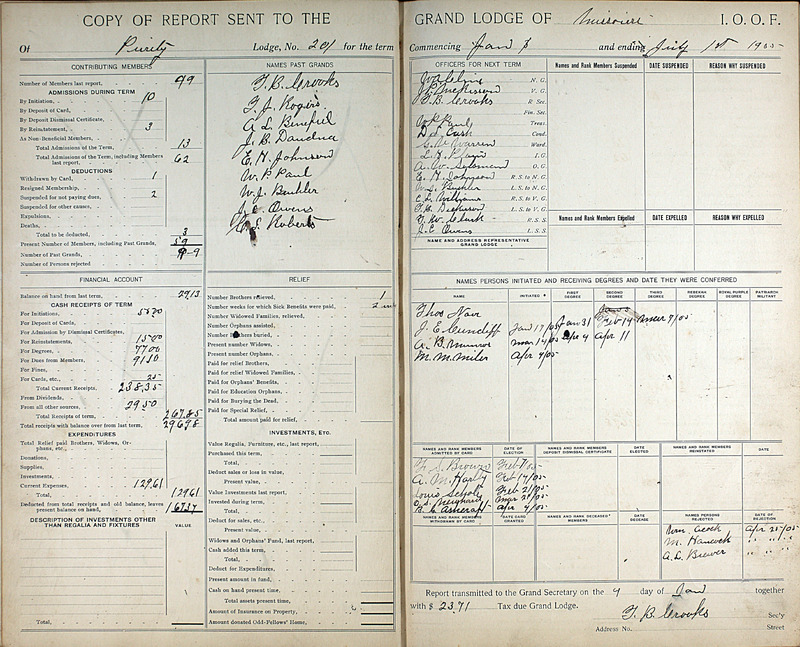 COPY OF REPORT SENT TO THE
Of Purity Lodge, No. 201 for the term
CONTRIBUTING MEMBERS
Number of Members last report, 49
ADMISSIONS DURING TERM
By Initiation, 10
By Deposit of Card,
By Deposit Dismissal Certificate,
By Reinstatement, 3
As Non-Beneficial Members,
Total Admissions of the Term, 13
Total Admissions of the Term, including Members last report, 62
DEDUCTIONS
Withdrawn by Card, 1
Resigned Membership,
Suspended for not paying dues, 2
Suspended for other causes,
Expulsions,
Deaths,
Total to be deducted, 3
Present Number of Members, including Past Grands, 59
Number of Past Grands, 9
Number of Persons rejected
NAMES PAST GRANDS
T. B. Crooks
T. J. Rogers
A L Binefiel
J. B. Dandna
E. H. Johnson
W. P. Paul
W. J. Buhler
J. E. Owens
L Roberts
FINANCIAL ACCOUNT
Balance on hand from last term, 2913
CASH RECEIPTS OF TERM
For Initiations,
For Deposit of Cards,
For Admission by Dismissal Certificates,
For Reinstatements, 1500
For Degrees, 7700
For Dues from Members, 9150
For Fines,
For Cards, etc., 25
Total Current Receipts, 238.35
From Dividends,
From all other sources, 29.50
Total Receipts of term, 267.85
Total receipts with balance over from last term, 296.98
EXPENDITURES
Total Relief paid Brothers, Widows, Orphans, etc.,
Donations,
Supplies,
Investments,
Current Expenses, 129.61
Total, 129.61
Deducted from total receipts and old balance, leaves present balance on hand, 167.37
DESCRIPTION OF INVESTMENTS OTHER THAN REGALIA AND FIXTURES
VALUE
Total,
RELIEF
Number Brothers relieved, 1
Number weeks for which Sick Benefits were paid, 2
Number Widowed Families, relieved,
Number Orphans assisted,
Number Brothers buried,
Present number Widows,
Present number Orphans,
Paid for relief Brothers,
Paid for relief Widowed Families,
Paid for Orphans' Benefits,
Paid for Education Orphans,
Paid for Burying the Dead,
Paid for Special Relief,
Total amount paid for relief,
INVESTMENTS, ETC.
Value Regalia, Furniture, etc., last report,
Purchased this term,
Total,
Deduct sales or loss in value,
Present value,
Value Investments last report,
Invested during term,
Total,
Deduct for sales, etc.,
Present value,
Widows and Orphans' Fund, last report,
Cash added this term,
Total,
Deduct for Expenditures,
Present amount in fund,
Cash on hand present time,
Total assets present time,
Amount of Insurance on Property,
Amount donated Odd-Fellows' Home,
GRAND LODGE OF Missouri I. O. O. F.
Commencing Jan and ending July 1st 1905
OFFICERS FOR NEXT TERM
N. G.
V. G.
T. B. Crooks R Sec.
Fin. Sec.
W P Paul Treas.
D. L. Cash Cond.
G. W. Warren Ward.
I. G.
O. G.
E. H. Johnson R. S. to N. G.
L. S. to N. G.
C L Williams R. S. to V. G.
L. S. to V. G.
R. S. S.
J. E. Owens L. S. S.
NAME AND ADDRESS REPRESENTATIVE GRAND LODGE
Names and Rank Members Suspended
DATE SUSPENDED
REASON WHY SUSPENDED
Names and Rank Members Expelled
DATE EXPELLED
REASON WHY EXPELLED
NAMES PERSONS INITIATED AND RECEIVING DEGREES AND DATE THEY WERE CONFERRED
NAME INITIATED FIRST DEGREE SECOND DEGREE THIRD DEGREE REBEKAH DEGREE ROYAL PURPLE DEGREE PATRIARCH MILITANT
Thos Narr
J. E. Cuncliff Jan 17/05 Jan 31 Feb 14 mar 7/05
A. B. Munroe mar 14/05 Apr 4 Apr 11
M. M. Miles Apr 4/05
NAMES AND RANK MEMBERS ADMITTED BY CARD
DATE OF ELECTION
NAMES AND RANK MEMBERS DEPOSIT DISMISSAL CERTIFICATE
DATE ELECTED
NAMES AND RANK MEMBERS REINSTATED
DATE
T. S. Brown Feb 7/05
A. M. Harty Feb 14/05
Louis Schols Feb 21/05
mar 21/05
Ashcraft Apr 4/05
NAMES AND RANK MEMBERS WITHDRAWN BY CARD
DATE CARD GRANTED
NAMES AND RANK DECEASED MEMBERS
DATE DECEASE
NAMES PERSONS REJECTED
DATE OF REJECTION
Wm. Acock Apr 25/05
M. Hancock " " "
A. L. Brewer " " "
Report transmitted to the Grand Secretary on the 9 day of Jan together
with $ 23.71 Tax due Grand Lodge.
T. B. Crooks Sec'y
Address No. Street